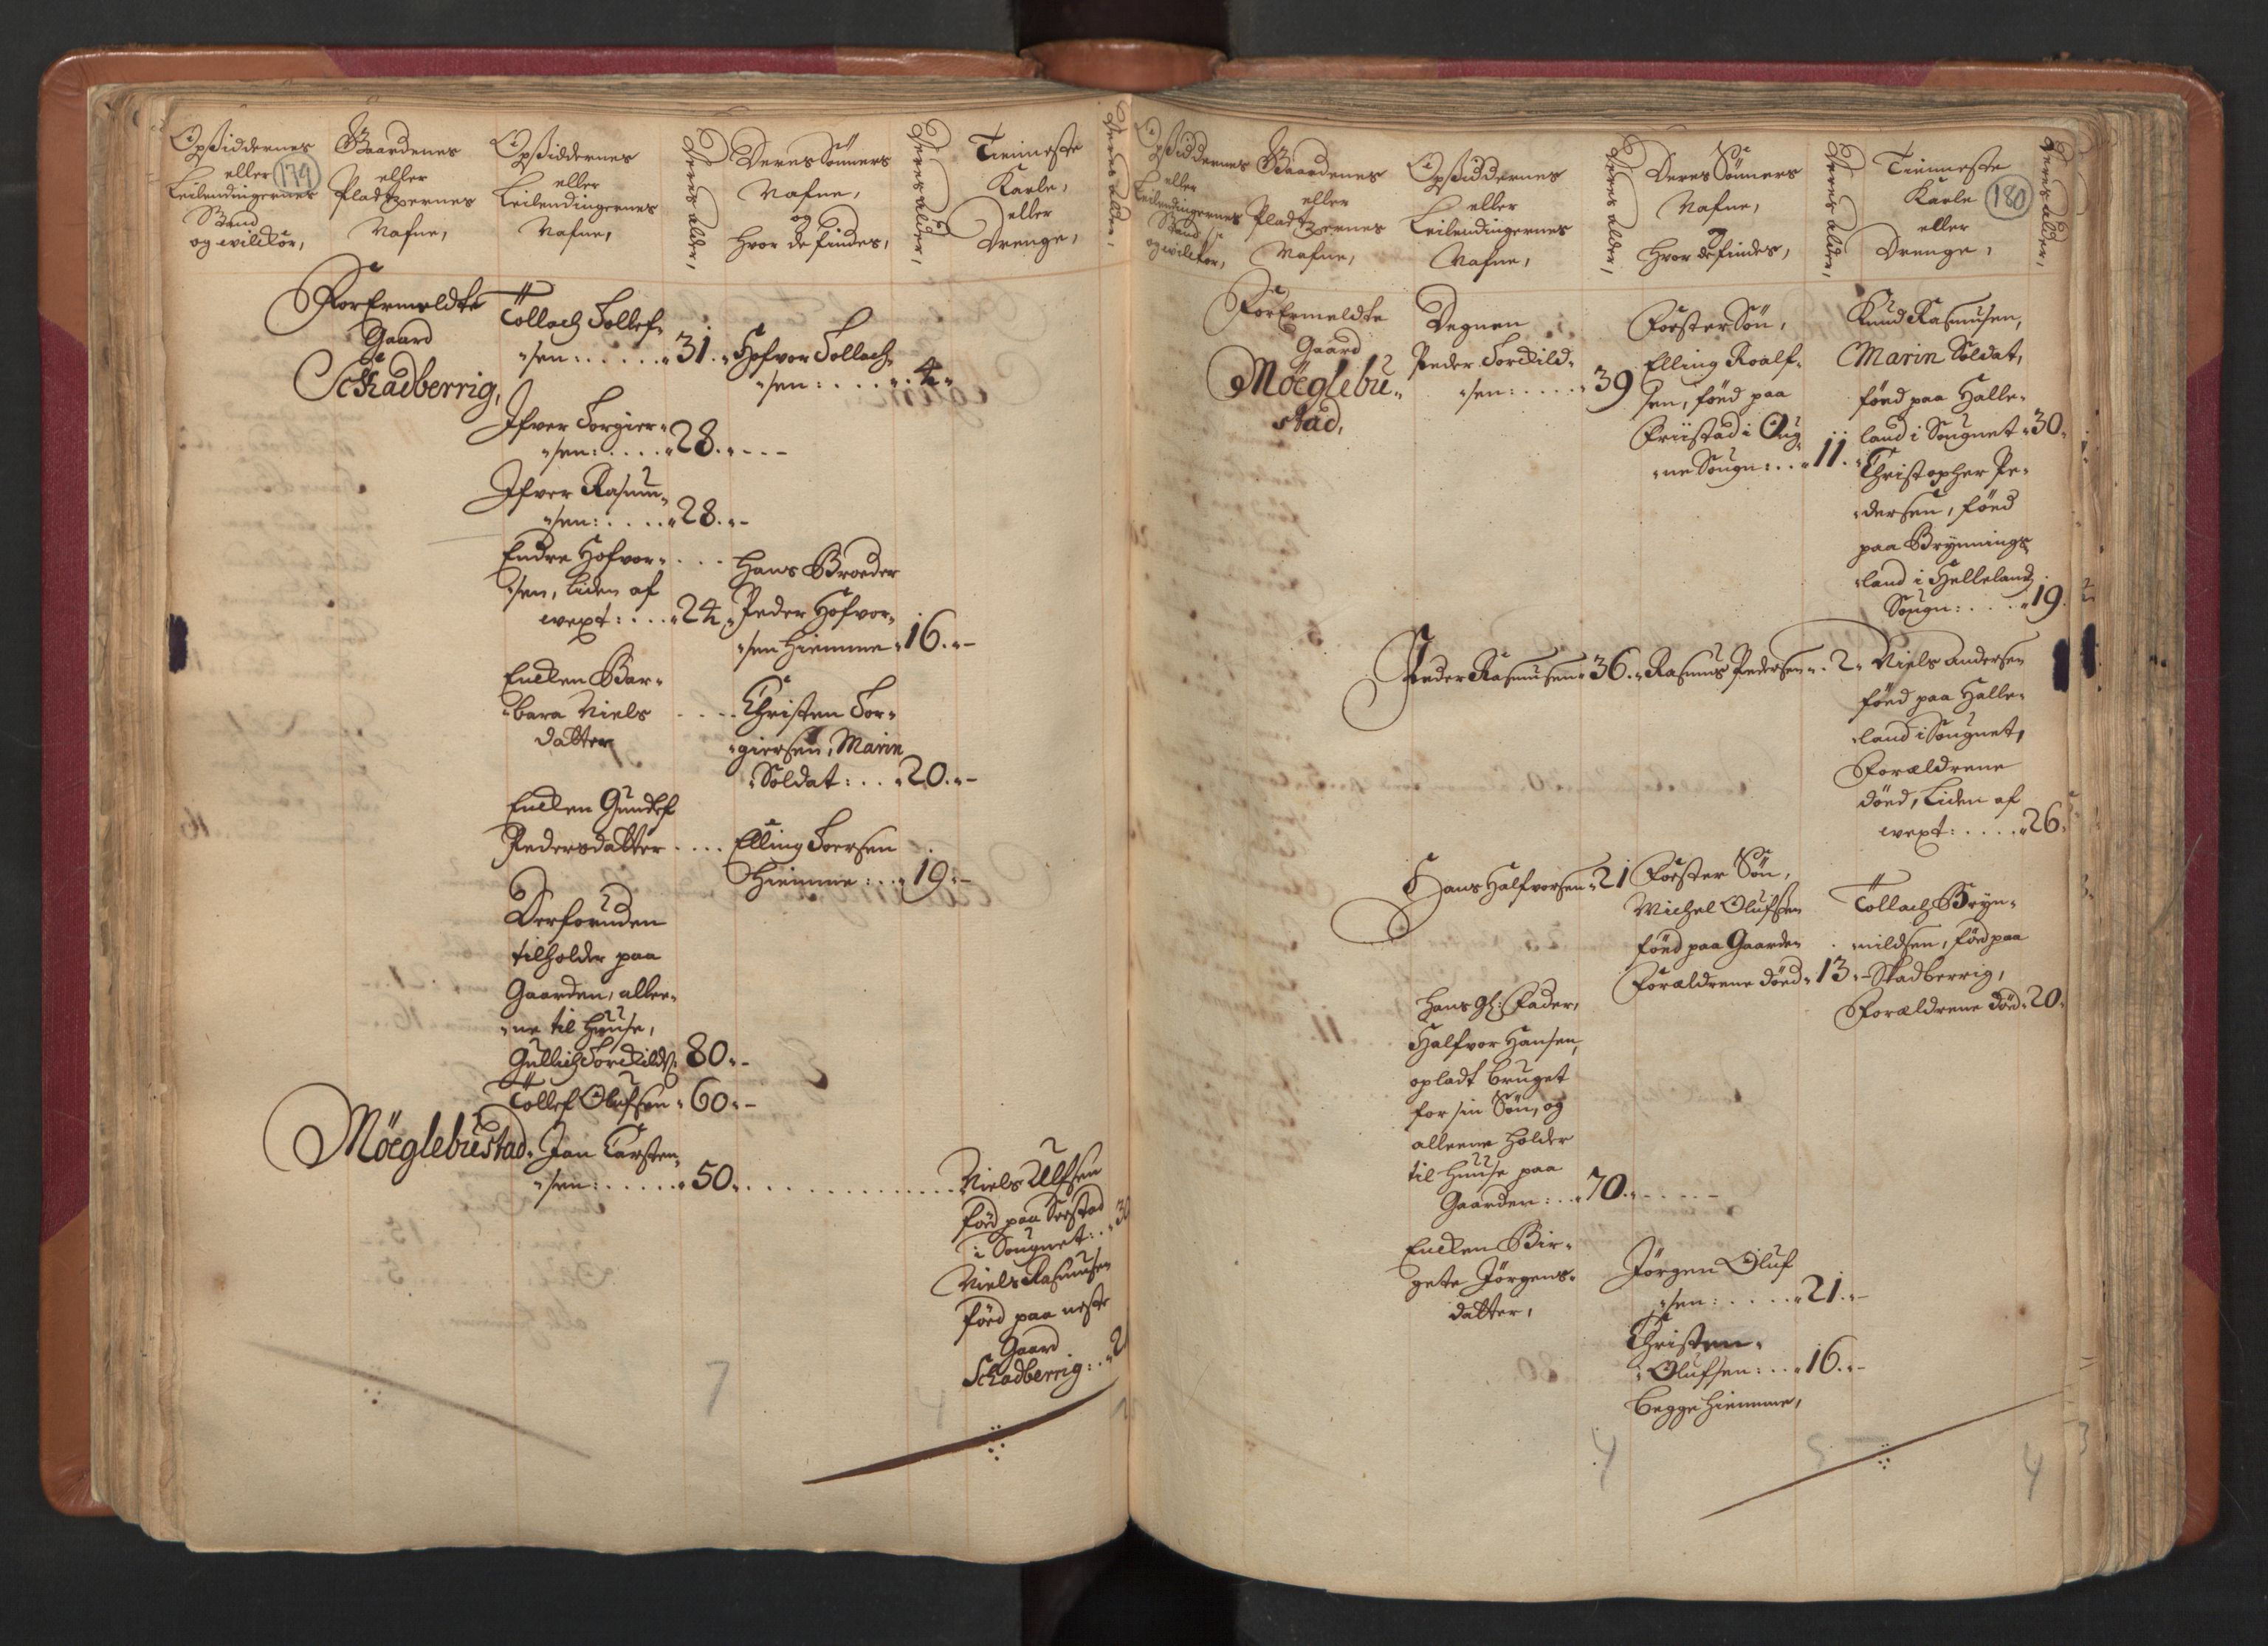 Opsiddernes
eller
Leilendingernes
Stand
og wilckor,
179
Gaardenes
eller
Pladtzernes
Nafne,
Opsiddernes
eller
Leilendingernes
Nafne,
Deres alder,
Deres Sönners
Nafne,
og
hvor de findes,
Deres alder,
Tienneste
Karle,
eller
Drenge,
Deres alder,
ForErmeldte
Gaard
Schadberrig,
Tollach Tollef-
sen: 31.
Hofvor Tollach-
sen: 4
Ifver Torgier-
sen: 28.
Ifver Rasmu-
sen: 28.
Endre Hofvor-
sen, liden af
wext: 24
Hans Broeder
Peder Hofvor-
sen hiemme 16.
Encken Bar-
bara Niels
datter
Christen Tor-
giersen, Marin
Soldat: 20.
Encken Gundel
Pedersdatter
Elling Toersen
hiemme: 19.
Derforuden
tilholder paa
Gaarden, allee-
ne til huuse,
Gullich Torckilds: 80.
Tollef Olufsen 60.
Möeglebustad. Jan Carsten-
sen: 50.
Niels Ulfsen
föed paa
i Sougnet: 30
Niels Rasmusen
föed paa neste
Gaard
Schadberrig: 2
7
Opsiddernes
eller
Leilendingernes
Stand
og wilckor,
Gaardenes
eller
Pladtzernes
Nafne,
Opsiddernes
eller
Leilendingernes
Nafne,
Deres alder,
Deres Sönners
Nafne,
og
hvor de findes,
Deres alder,
Tienneste
Karle
180
eller
Drenge,
Deres alder,
ForErmeldte
Gaard
Möeglebu-
stad,
Degnen
Peder Torckild-
sen: 39
Foester Sön,
Elling Roalf-
sen, föed paa
Friistad i Oug-
ne Sougn: 11.
Knud Rasmusen,
Marin Soldat,
föed paa Halle-
land i Sougnet 30.
Christopher Pe-
dersen, föed
paa Brynnings
land i Helleland
Sougn: 19.
Peder Rasmusen 36. Rasmus Pedersen 2. Niels Andersen
föed paa Halle-
land i Sougnet,
Forældrene
döed, liden af
wext: 26.
Hans Halfvorsen 21
Foester Sön,
Michel Olufsen
föed paa Gaarden
Forældrene döed 13.
Tollach Bryn-
nildsen, föed paa
Skadberrig,
Forældrene döed 20.
Hans gl: Fader,
Halfvor Hansen,
opladt bruget
for sin Sön, og
alleene holder
til huuse paa
Gaarden: 70.
Encken Bir-
gete Jörgens-
datter,
Jörgen Oluf
sen: 21.
Christen
Olufsen: 16.
begge hiemme,
4
5
4